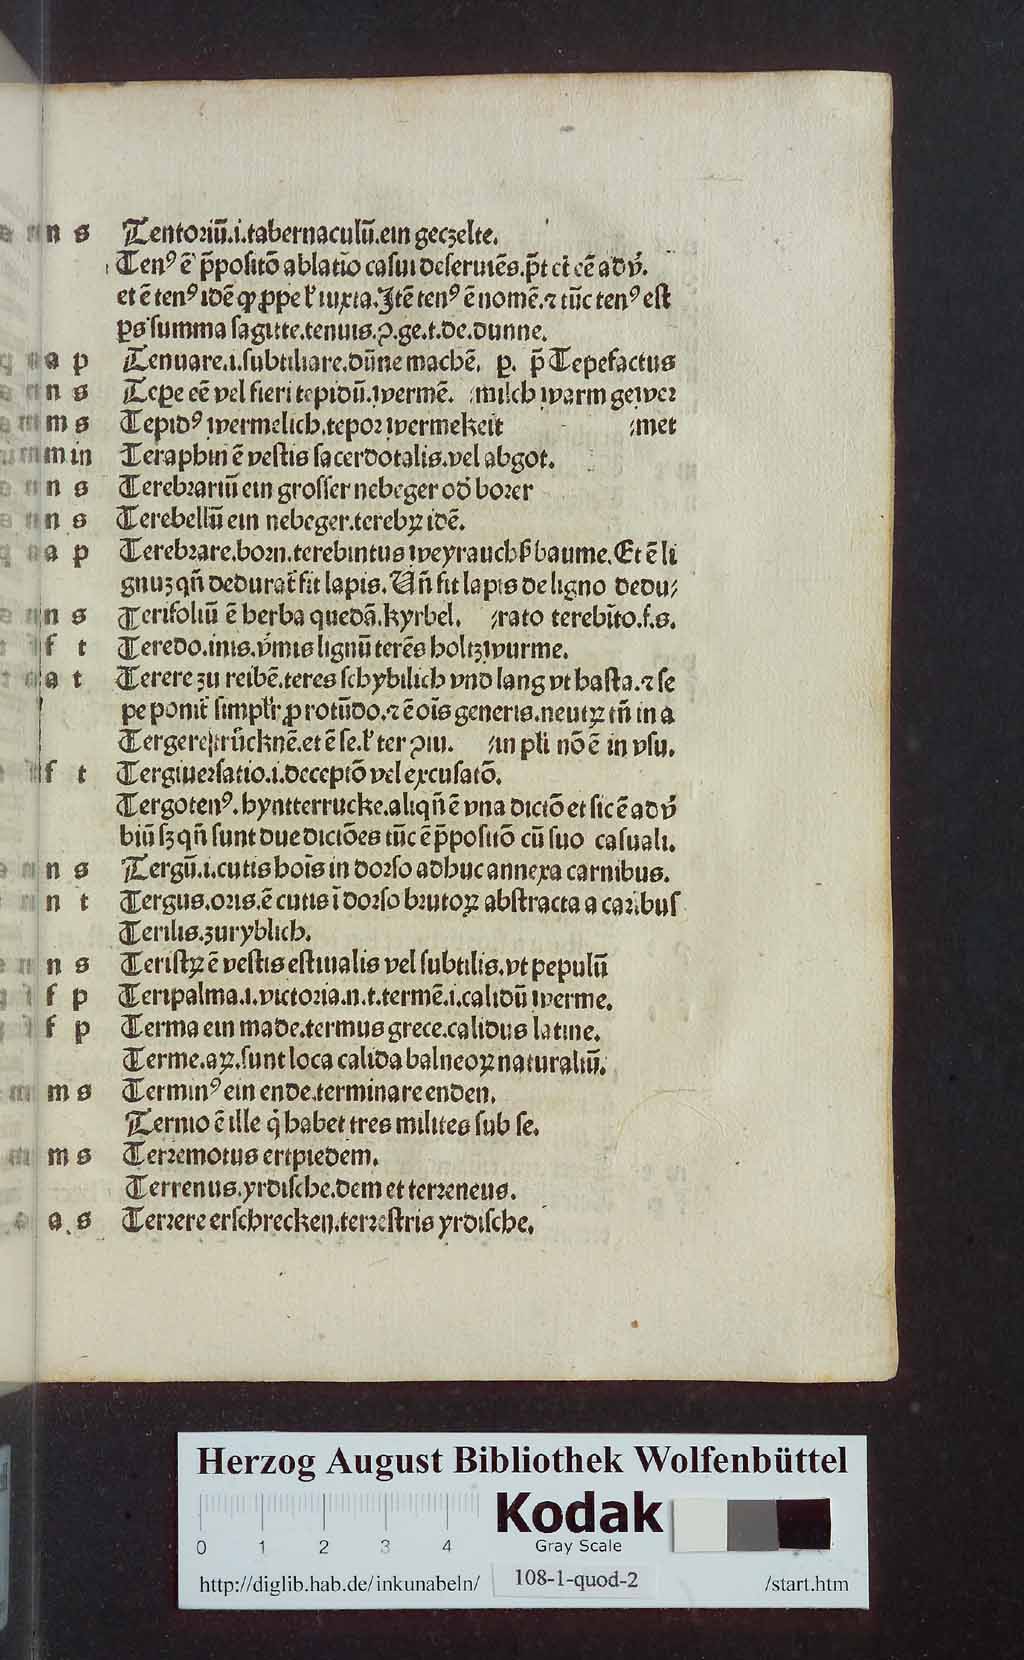 n s Tentoriū.i.tabernaculū.ein geczelte.
Tenꝰ ē p̄positō ablatīo casui deseruiēs.p̄t et eē adv̄.
et ē tenꝰ idē ꝙ ꝓpe ł iuxta.Jtē tenꝰ ē nomē.⁊ tūc tenꝰ est
ps summa sagitte.tenuis.ꝛ.ge.t.de.dunne.
a p Tenuare.i.subtiliare.dūne machē. p. p̄ Tepefactus
n s Tepe eē vel fieri tepidū.wermē. milch warm gewer
m s Tepidꝰ wermelich.tepor wermekeit met
m in Teraphin ē vestis sacerdotalis.vel abgot.
n s Terebrariū ein grosser nebeger od̄ borer
n s Terebellū ein nebeger.terebꝝ idē.
a p Terebrare.born.terebintus weyrauch baume.Et ē li
gnuꝫ qn̄ dedurat̄ fit lapis.Vn̄ fit lapis de ligno dedu⸗
n s Terifoliū ē herba quedā.kyrbel. rato terebīto.f.s.
f t Teredo.inis.v̄mis lignū terēs holtzwurme.
a t Terere zu reibē.teres schybilich vnd lang vt hasta.⁊ se
pe ponit̄ simplr̄ ꝓ rotūdo.⁊ ē oīs generis.neutꝝ tn̄ in a
Tergere trůcknē.et ē se.ł ter ꝛiu. in pli nō ē in vsu.
f t Tergiuersatio.i.deceptō vel excusatō.
Tergotenꝰ.hyntterrucke.aliqn̄ ē vna dictō et sic ē adv̄
biū sꝫ qn̄ sunt due dictōes tūc ē p̄positō cū suo casuali.
n s Tergū.i.cutis hoīs in dorso adhuc annexa carnibus.
n t Tergus.oris.ē cutis ī dorso brutoꝝ abstracta a caribus
Terilis.zuryblich.
n s Teristꝝ ē vestis estiualis vel subtilis.vt pepulū
f p Teripalma.i.victoria.n.t.termē.i.calidū werme.
f p Terma ein made.termus grece.calidus latine.
Terme.aꝝ.sunt loca calida balneoꝝ naturaliū.
m s Terminꝰ ein ende.terminare enden.
Ternio ē ille q̇ habet tres milites sub se.
m s Terremotus ertpiedem.
Terrenus.yrdische.dem et terreneus.
a s Terrere erschrecken.terrestris yrdische.
Herzog August Bibliothek Wolfenbüttel
Kodak
Gray Scale
0 1 2 3 4
http://diglib.hab.de/inkunabeln/ 108-1-quod-2 /start.htm